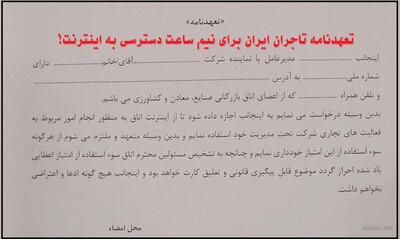 «تعهدنامه»
تعهدنامه تاجران ایران برای نیم ساعت دسترسی به اینترنت!
اینجانب .................... مدیرعامل یا نماینده شرکت .................... آقای/خانم .................... دارای
شماره ملی .................... به آدرس ....................
و تلفن همراه .................... که از اعضای اتاق بازرگانی صنایع، معادن و کشاورزی می باشم.
بدین وسیله درخواست می نمایم به اینجانب اجازه داده شود تا از اینترنت اتاق به منظور انجام امور مربوط به
فعالیت های تجاری شرکت تحت مدیریت خود استفاده نمایم و بدین وسیله متعهد و ملتزم می شوم از هرگونه
سوء استفاده از این امتیاز خودداری نمایم و چنانچه به تشخیص مسئولین محترم اتاق سوء استفاده از امتیاز اعطایی
یاد شده احراز گردد موضوع قابل پیگیری قانونی و تعلیق کارت خواهد بود و اینجانب هیچ گونه ادعا و اعتراضی
نخواهم داشت.
محل امضاء